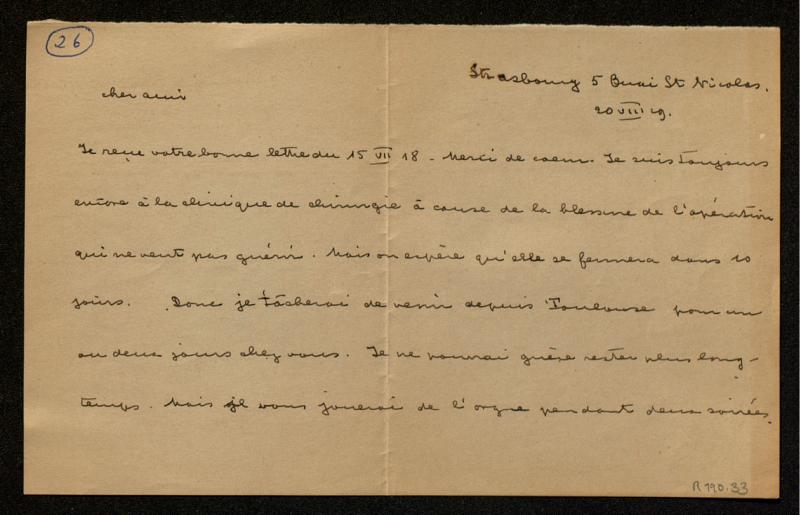 26
Strasbourg 5 Quai St Nicolas.
20 VIII 19.
cher ami
Je reçu votre bonne lettre du 15 VII 18 - Merci de coeur. Je suis toujours
encore à la clinique de chirurgie à cause de la blessure de l'opération
qui ne veut pas guérir. Mais on espère qu'elle se fermera dans 10
jours. Donc je tâcherai de venir depuis Toulouse pour un
ou deux jours chez vous. Je ne pourrai guère rester plus long-
temps. Mais je vous jouerai de l'orgue pendant deux soirées.
R 190.33